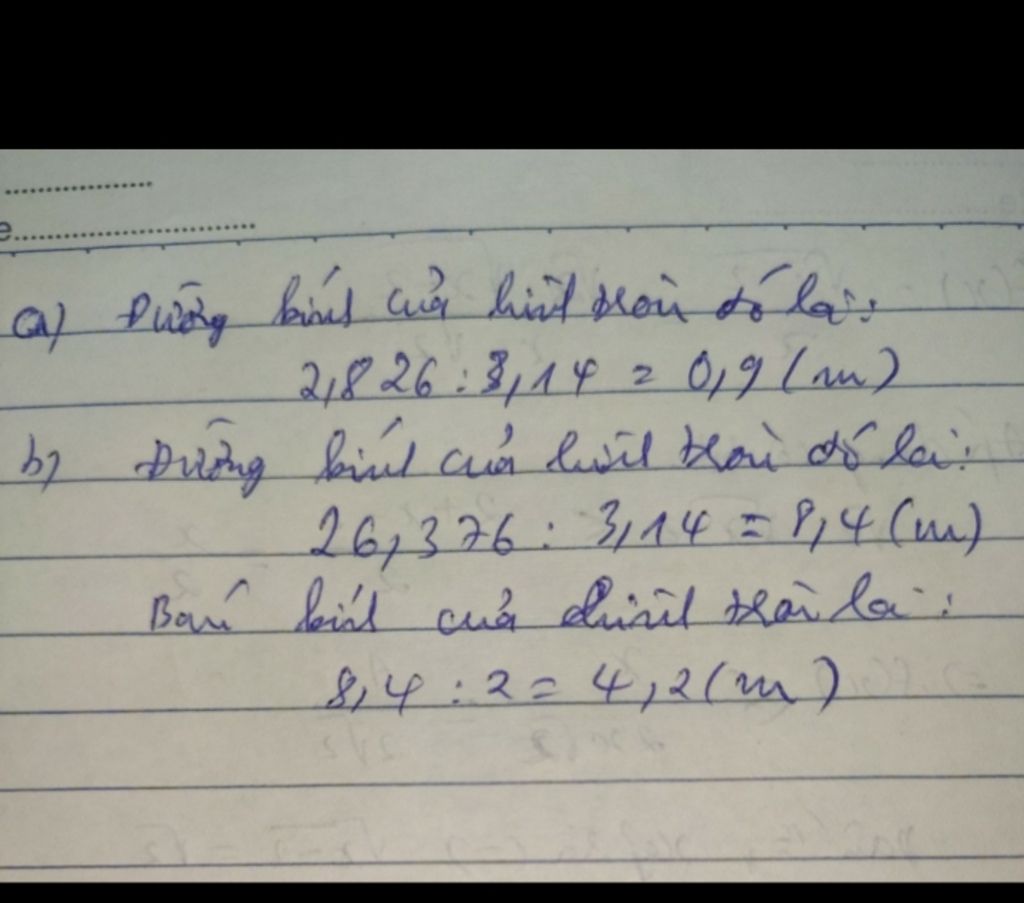 a) Đường kính của hình tròn đó là:
2,826 : 3,14 = 0,9 (m)
b) Đường kính của hình tròn đó là:
26,376 : 3,14 = 8,4 (m)
Bán kính của hình tròn là:
8,4 : 2 = 4,2 (m)